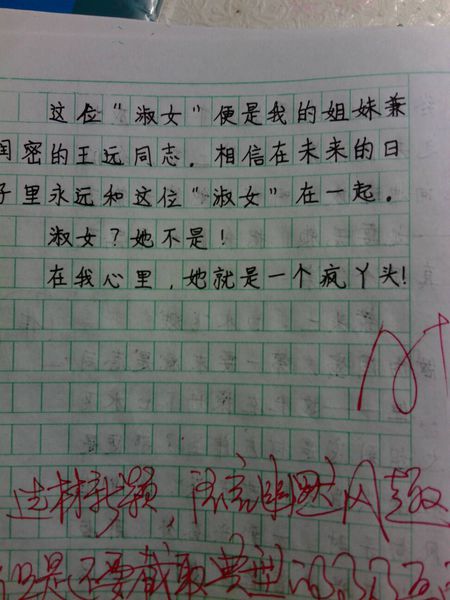 这位“淑女”便是我的姐妹兼
闺密的王远同志。相信在未来的日
子里永远和这位“淑女”在一起。
淑女？她不是！
在我心里，她就是一个疯丫头！
选材新颖，语言幽默风趣
但是还要截取典型的